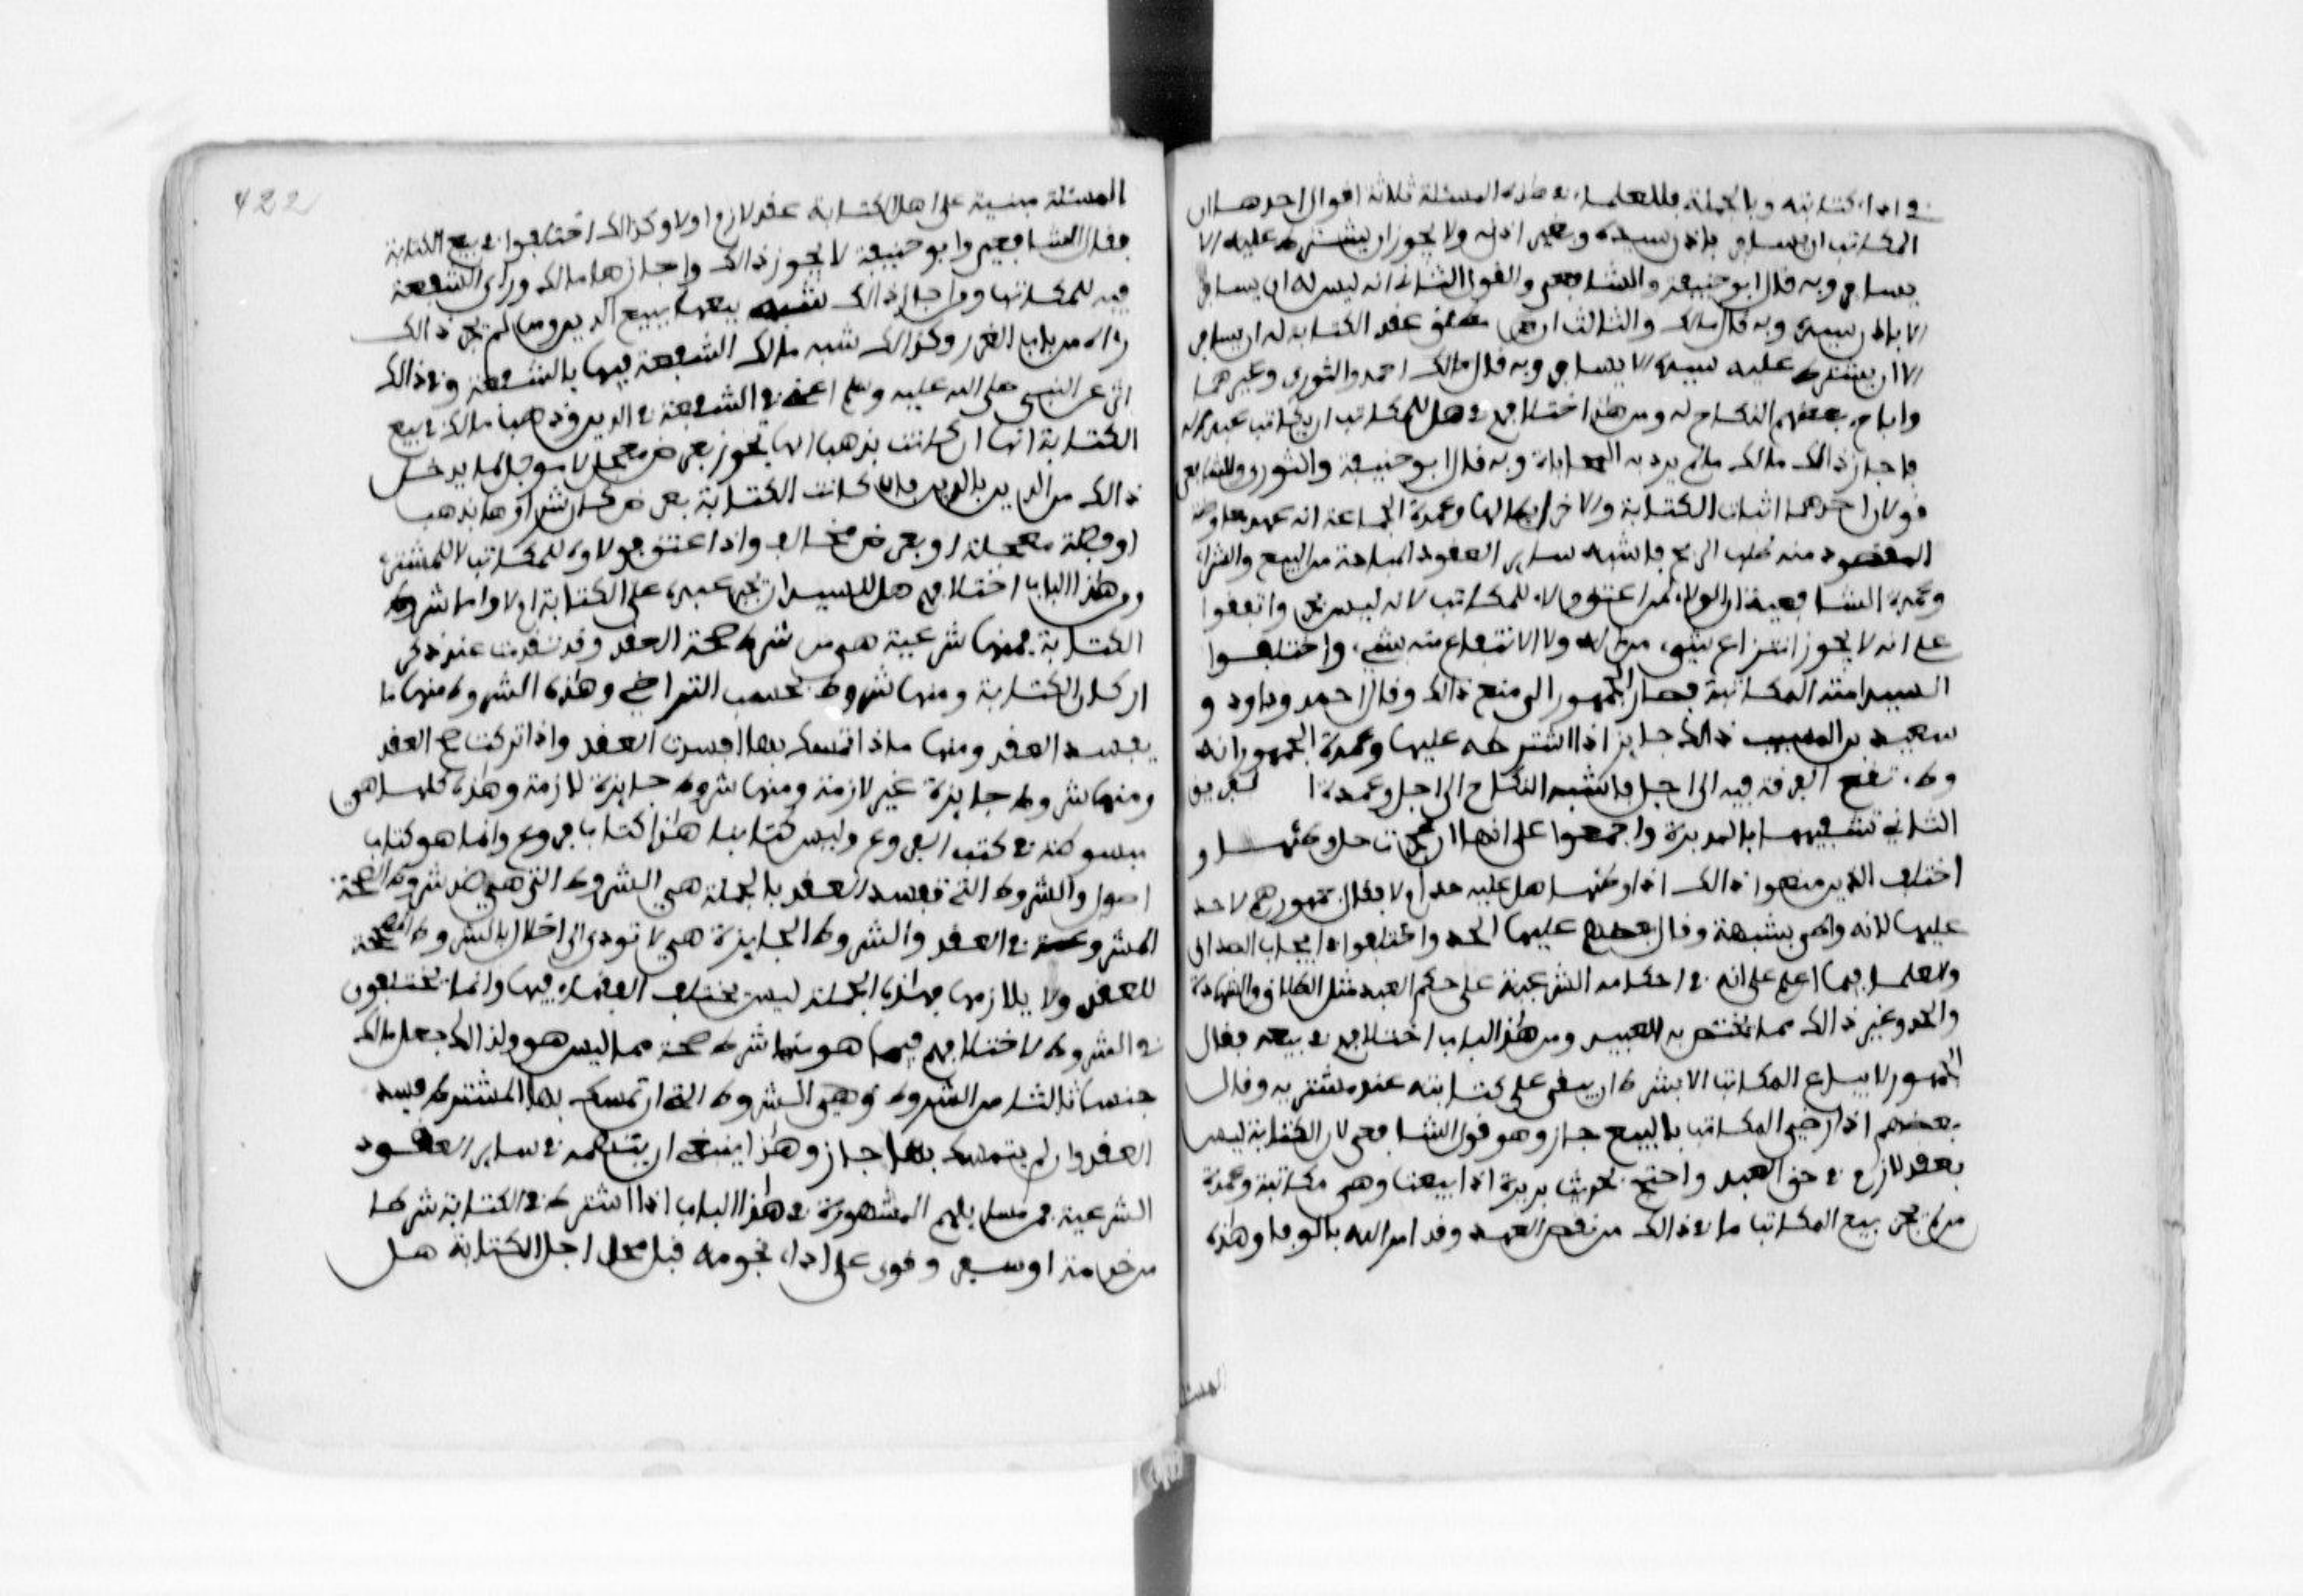 في اداء كتابته وبالجملة فللعلماء في هذه المسئلة ثلاثة اقوال احدها ان
المكاتب ان يسافر باذن سيده وبغير اذنه ولا يجوز ان يشترط عليه الا
يسافر وبه قال ابو حنيفة والشافعي والقول الثاني انه ليس له ان يسافر
الا باذن سيده وبه قال مالك والثالث ان عقد الكتابة له ان يسافر
الا ان يشترط عليه سيده الا يسافر وبه قال مالك احمد والثوري وغيرهما
واباح بعضهم النكاح له ومن هذا اختلافهم في هل للمكاتب ان يكاتب عبدا له
فاجاز ذالك مالك مالم يرد به المحاباة وبه قال ابو حنيفة والثوري وللشافعي
قولان احدهما اثبات الكتابة والاخر ابطالها وعمدة الجماعة انه عهد معاوضة
المقصود منه طلب الربح فاشبه ساير العقود المباحة من البيع والشراء
وعمدة الشافعية ان الولاء لمن اعتق ولا ولاء للمكاتب لانه ليس بحر واتفقوا
على انه لا يجوز انتزاع شيء من ماله ولا الانتفاع منه بشيء واختلفوا
السيد امته المكاتبة فصار الجمهور الى منع ذالك وقال احمد وداود و
سعيد بن المسيب ذالك جايز اذا اشترطه عليها وعمدة الجمهور انه
وطء تقع الفرقة فيه الى اجل فاشبه النكاح الى اجل وعمدة ا لفريق
الثاني تشبيهها بالمدبرة واجمعوا على انها ان عجزت حل وطئها و
اختلف الذين منعوا ذالك اذا وطئها هل عليه حد اولا فقال جمهورهم لا حد
عليها لانه وطي بشبهة وقال بعضهم عليها الحد واختلفوا في ايجاب الصداق
والعلماء فيما اعلم على انه في احكامه الشرعية على حكم العبد مثل الطلاق والشهادة
والحد وغير ذالك مما يختص به العبيد ومن هذا الباب اختلافهم في بيعه فقال
الجمهور لا يباع المكاتب الا بشرط ان يبقى على كتابته عند مشتريه وقال
بعضهم اذا رضي المكاتب بالبيع جاز وهو قول الشافعي لان الكتابة ليس
بعقد لازم في حق العبد واحتج بحديث بريرة اذ ابيعت وهي مكاتبة وعمدة
من لم يجز بيع المكاتب ما في ذالك من نقض العهد وقد امر الله بالوفا وهذه
المسئلة
المسئلة مبنية على اهل الكتابة عقد لازم اولا وكذالك اختلفوا في بيع الكتابة
فقال الشافعي وابو حنيفة لا يجوز ذالك واجازها مالك وراى الشفعة
فيه للمكاتب ومن اجاز ذالك شبه بيعها ببيع الدين ومن لم يجز ذالك
راه من باب الغرر وكذالك شبه مالك الشفعة فيها بالشفعة وفي ذالك
اثر عن النبي صلى الله عليه وسلم اعني في الشفعة في الدين ومذهب مالك في بيع
الكتابة انها ان كانت بذهب انها تجوز بعرض معجل لا موجل لما يدخل
ذالك من الدين بالدين وان كانت الكتابة بعرض كان شراوها بذهب
او فضة معجلة او بعرض مخالف واذا اعتق فولاوه للمكاتب لا للمشتري
ومن هذا الباب اختلافهم هل للسيد ان يجبر عبده على الكتابة اولا واما شروط
الكتابة فمنها شرعية هي من شرط صحة العقد وقد تقدمت عند ذكر
اركان الكتابة ومنها شروط بحسب التراضي وهذه الشروط منها ما
يفسد العقد ومنها ما اذا تمسك بها افسدت العقد واذا تركت صح العقد
ومنها شروط جايزة غير لازمة ومنها شروط جايزة لازمة وهذه كلها هي
مبسوطة في كتب الفروع وليس كتابنا هذا كتاب فروع وانما هو كتاب
اصول والشروط التي تفسد العقد بالجملة هي الشروط التي هي ضد شروط الصحة
المشروعة في العقد والشروط الجايزة هي لا تودي الى اخلال بالشروط المصححة
للعقد ولا يلازمها فهذه الجملة ليس يختلف الفقهاء فيها وانما يختلفون
في الشروط لاختلافهم فيما هو منها شرط صحة مما ليس هو ولذالك جعل مالك
جنسا ثالثا من الشروط وهي الشروط التي ان تمسك بها المشترط فسد
العقد وان لم يتمسك بها جاز وهذا ينبغي ان يتفهمه في ساير العقود
الشرعية فمن مسايلهم المشهورة في هذا الباب اذا اشترط في الكتابة شرطا
من خدمة او سفر وقوى على اداء نجومه قبل محل اجل الكتابة هل
422